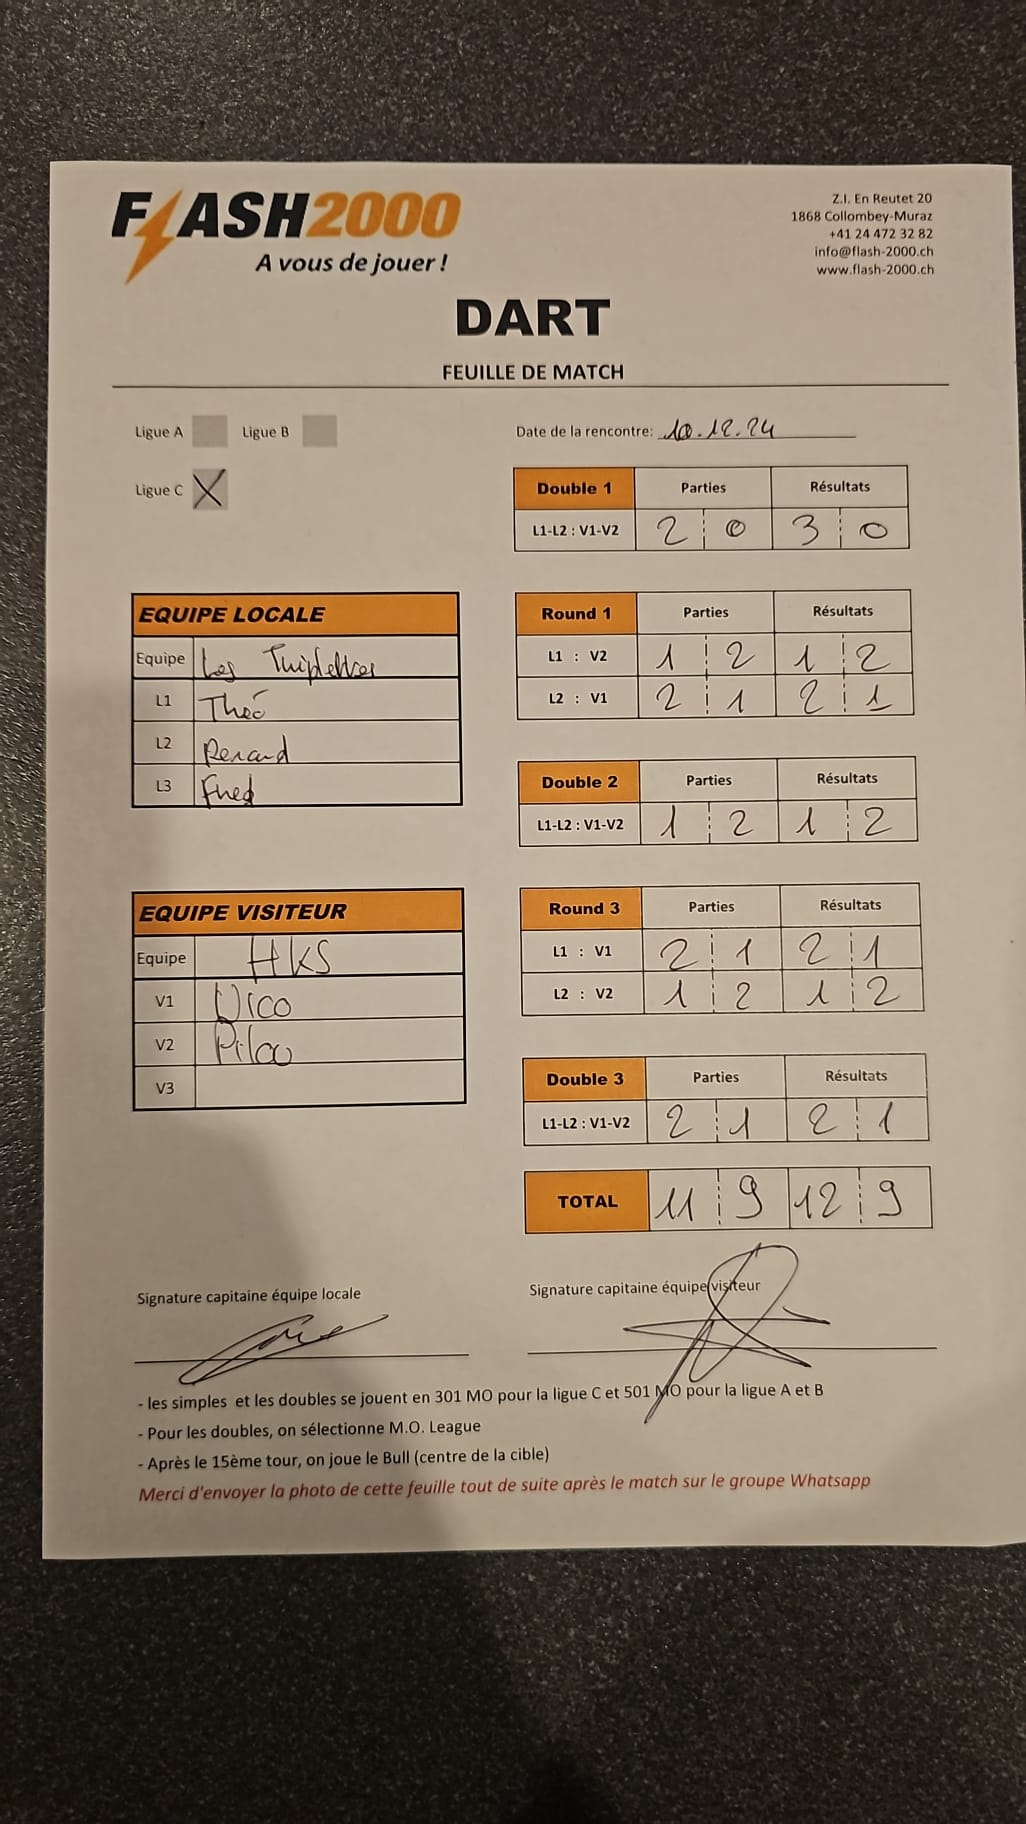 FLASH2000
A vous de jouer !
Z.I. En Reutet 20
1868 Collombey-Muraz
+41 24 472 32 82
info@flash-2000.ch
www.flash-2000.ch
DART
FEUILLE DE MATCH
Ligue A Ligue B
Date de la rencontre: 10.12.24
Ligue C X
Double 1 Parties Résultats
L1-L2 : V1-V2 2 0 3 0
EQUIPE LOCALE
Equipe Les Triplettes
L1 Théo
L2 Renard
L3 Fred
Round 1 Parties Résultats
L1 : V2 1 2 1 2
L2 : V1 2 1 2 1
Double 2 Parties Résultats
L1-L2 : V1-V2 1 2 1 2
EQUIPE VISITEUR
Equipe HKS
V1 Nico
V2 Pilou
V3
Round 3 Parties Résultats
L1 : V1 2 1 2 1
L2 : V2 1 2 1 2
Double 3 Parties Résultats
L1-L2 : V1-V2 2 1 2 1
TOTAL 11 9 12 9
Signature capitaine équipe locale
Signature capitaine équipe visiteur
- les simples et les doubles se jouent en 301 MO pour la ligue C et 501 MO pour la ligue A et B
- Pour les doubles, on sélectionne M.O. League
- Après le 15ème tour, on joue le Bull (centre de la cible)
Merci d'envoyer la photo de cette feuille tout de suite après le match sur le groupe Whatsapp